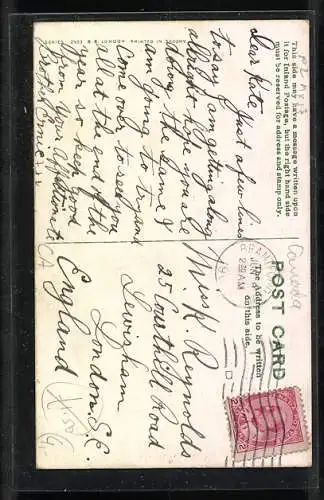 SERIES 2903 B.B. LONDON. PRINTED IN SAXONY
This side may have a message written upon
it for Inland Postage, but the right hand side
must be reserved for address and stamp only.
Dear Kate Just a few lines
to say am getting along
allright hope you are
doing the same I
am going to try and
Come over to see you
all at the end of the
year so keep good
from Your
Brother
POST CARD
The Address to be written
on this side.
Canada
Miss K. Reynolds
25 Courthill Road
Lewisham
London S.E.
England